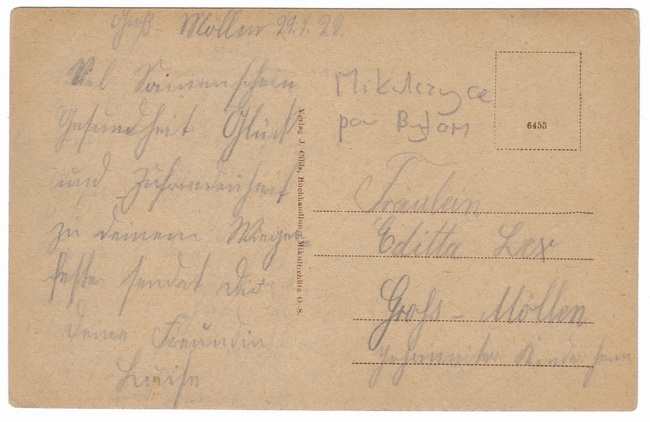 Groß-Möllen 29.1.28.
Viel Sonnenschein
Gesundheit Glück
und Zufriedenheit
zu deinem Wiegen
feste sendet dir
deine Freundin
Luise
Verlag J. Buchhandlung, Mikultschütz O. S.
Mikulczyce
pow Bytom
6453
Fräulein
Editta Lex
Groß-Möllen
Johanniter Kinderheim